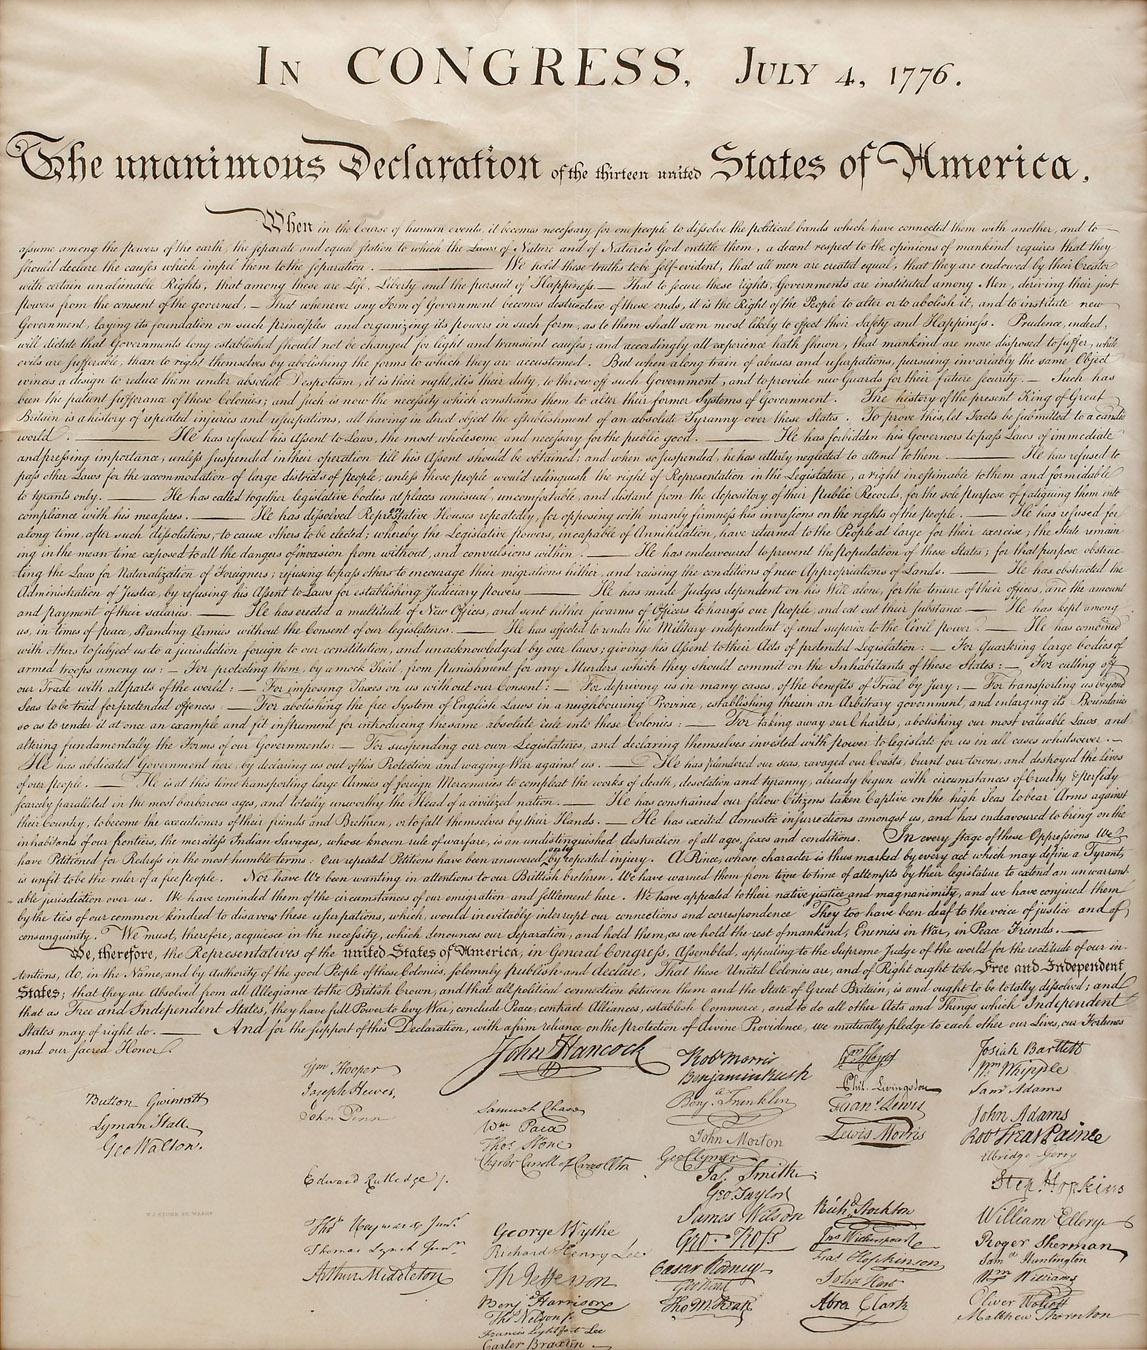 In CONGRESS, July 4, 1776.
The unanimous Declaration of the thirteen united States of America,
When in the Course of human events, it becomes necessary for one people to dissolve the political bands which have connected them with another, and to
assume among the powers of the earth, the separate and equal station to which the Laws of Nature and of Nature's God entitle them, a decent respect to the opinions of mankind requires that they
should declare the causes which impel them to the separation. ——— We hold these truths to be self-evident, that all men are created equal, that they are endowed by their Creator
with certain unalienable Rights, that among these are Life, Liberty and the pursuit of Happiness. — That to secure these rights, Governments are instituted among Men, deriving their just
powers from the consent of the governed, — That whenever any Form of Government becomes destructive of these ends, it is the Right of the People to alter or to abolish it, and to institute new
Government, laying its foundation on such principles and organizing its powers in such form, as to them shall seem most likely to effect their Safety and Happiness. Prudence, indeed,
will dictate that Governments long established should not be changed for light and transient causes; and accordingly all experience hath shewn, that mankind are more disposed to suffer, while
evils are sufferable, than to right themselves by abolishing the forms to which they are accustomed. But when a long train of abuses and usurpations, pursuing invariably the same Object
evinces a design to reduce them under absolute Despotism, it is their right, it is their duty, to throw off such Government, and to provide new Guards for their future security. — Such has
been the patient sufferance of these Colonies; and such is now the necessity which constrains them to alter their former Systems of Government. The history of the present King of Great
Britain is a history of repeated injuries and usurpations, all having in direct object the establishment of an absolute Tyranny over these States. To prove this, let Facts be submitted to a candid
world. ——— He has refused his Assent to Laws, the most wholesome and necessary for the public good. ——— He has forbidden his Governors to pass Laws of immediate
and pressing importance, unless suspended in their operation till his Assent should be obtained; and when so suspended, he has utterly neglected to attend to them. ——— He has refused to
pass other Laws for the accommodation of large districts of people, unless those people would relinquish the right of Representation in the Legislature, a right inestimable to them and formidable
to tyrants only. ——— He has called together legislative bodies at places unusual, uncomfortable, and distant from the depository of their Public Records, for the sole purpose of fatiguing them into
compliance with his measures. ——— He has dissolved Representative Houses repeatedly, for opposing with manly firmness his invasions on the rights of the people. ——— He has refused for
a long time, after such dissolutions, to cause others to be elected; whereby the Legislative powers, incapable of Annihilation, have returned to the People at large for their exercise; the State remain
ing in the mean time exposed to all the dangers of invasion from without, and convulsions within. ——— He has endeavoured to prevent the population of these States; for that purpose obstruc
ting the Laws for Naturalization of Foreigners; refusing to pass others to encourage their migrations hither, and raising the conditions of new Appropriations of Lands. ——— He has obstructed the
Administration of Justice, by refusing his Assent to Laws for establishing Judiciary powers. ——— He has made Judges dependent on his Will alone, for the tenure of their offices, and the amount
and payment of their salaries. ——— He has erected a multitude of New Offices, and sent hither swarms of Officers to harrass our people, and eat out their substance. ——— He has kept among
us, in times of peace, Standing Armies without the Consent of our legislatures. ——— He has affected to render the Military independent of and superior to the Civil power. ——— He has combined
with others to subject us to a jurisdiction foreign to our constitution, and unacknowledged by our laws; giving his Assent to their Acts of pretended Legislation: — For Quartering large bodies of
armed troops among us: — For protecting them, by a mock Trial, from punishment for any Murders which they should commit on the Inhabitants of these States: — For cutting off
our Trade with all parts of the world: — For imposing Taxes on us without our Consent: — For depriving us in many cases, of the benefits of Trial by Jury: — For transporting us beyond
Seas to be tried for pretended offences — For abolishing the free System of English Laws in a neighbouring Province, establishing therein an Arbitrary government, and enlarging its Boundaries
so as to render it at once an example and fit instrument for introducing the same absolute rule into these Colonies: — For taking away our Charters, abolishing our most valuable Laws, and
altering fundamentally the Forms of our Governments: — For suspending our own Legislatures, and declaring themselves invested with power to legislate for us in all cases whatsoever. —
He has abdicated Government here, by declaring us out of his Protection and waging War against us. — He has plundered our seas, ravaged our Coasts, burnt our towns, and destroyed the lives
of our people. — He is at this time transporting large Armies of foreign Mercenaries to compleat the works of death, desolation and tyranny, already begun with circumstances of Cruelty & perfidy
scarcely paralleled in the most barbarous ages, and totally unworthy the Head of a civilized nation. — He has constrained our fellow Citizens taken Captive on the high Seas to bear Arms against
their Country, to become the executioners of their friends and Brethren, or to fall themselves by their Hands. — He has excited domestic insurrections amongst us, and has endeavoured to bring on the
inhabitants of our frontiers, the merciless Indian Savages, whose known rule of warfare, is an undistinguished destruction of all ages, sexes and conditions. In every stage of these Oppressions We
have Petitioned for Redress in the most humble terms: Our repeated Petitions have been answered only by repeated injury. A Prince, whose character is thus marked by every act which may define a Tyrant,
is unfit to be the ruler of a free people. Nor have We been wanting in attentions to our Brittish brethren. We have warned them from time to time of attempts by their legislature to extend an unwarrant
able jurisdiction over us. We have reminded them of the circumstances of our emigration and settlement here. We have appealed to their native justice and magnanimity, and we have conjured them
by the ties of our common kindred to disavow these usurpations, which, would inevitably interrupt our connections and correspondence They too have been deaf to the voice of justice and of
consanguinity. We must, therefore, acquiesce in the necessity, which denounces our Separation, and hold them, as we hold the rest of mankind, Enemies in War, in Peace Friends. ———
We, therefore, the Representatives of the united States of America, in General Congress, Assembled, appealing to the Supreme Judge of the world for the rectitude of our in-
tentions, do, in the Name, and by Authority of the good People of these Colonies, solemnly publish and declare, That these United Colonies are, and of Right ought to be Free and Independent
States; that they are Absolved from all Allegiance to the British Crown, and that all political connection between them and the State of Great Britain, is and ought to be totally dissolved; and
that as Free and Independent States, they have full Power to levy War, conclude Peace, contract Alliances, establish Commerce, and to do all other Acts and Things which Independent
States may of right do. ——— And for the support of this Declaration, with a firm reliance on the protection of divine Providence, we mutually pledge to each other our Lives, our Fortunes
and our sacred Honor.
Button Gwinnett
Lyman Hall
Geo Walton.
Wm Hooper
Joseph Hewes,
John Penn
Edward Rutledge /.
Thos Heyward Junr.
Thomas Lynch Junr.
Arthur Middleton
John Hancock
Samuel Chase
Wm Paca
Thos Stone
Charles Carroll of Carrollton
George Wythe
Richard Henry Lee
Th Jefferson
Benj Harrison
Thos Nelson jr.
Francis Lightfoot Lee
Carter Braxton
Robt Morris
Benjamin Rush
Benj. Franklin
John Morton
Geo Clymer
Jas. Smith
Geo. Taylor
James Wilson
Geo. Ross
Caesar Rodney
Geo Read
Tho M:Kean
Wm Floyd
Phil. Livingston
Frans. Lewis
Lewis Morris
Richd. Stockton
Jno Witherspoon
Fras. Hopkinson
John Hart
Abra Clark
Josiah Bartlett
Wm Whipple
Saml Adams
John Adams
Robt Treat Paine
Elbridge Gerry
Step. Hopkins
William Ellery
Roger Sherman
Saml Huntington
Wm Williams
Oliver Wolcott
Matthew Thornton